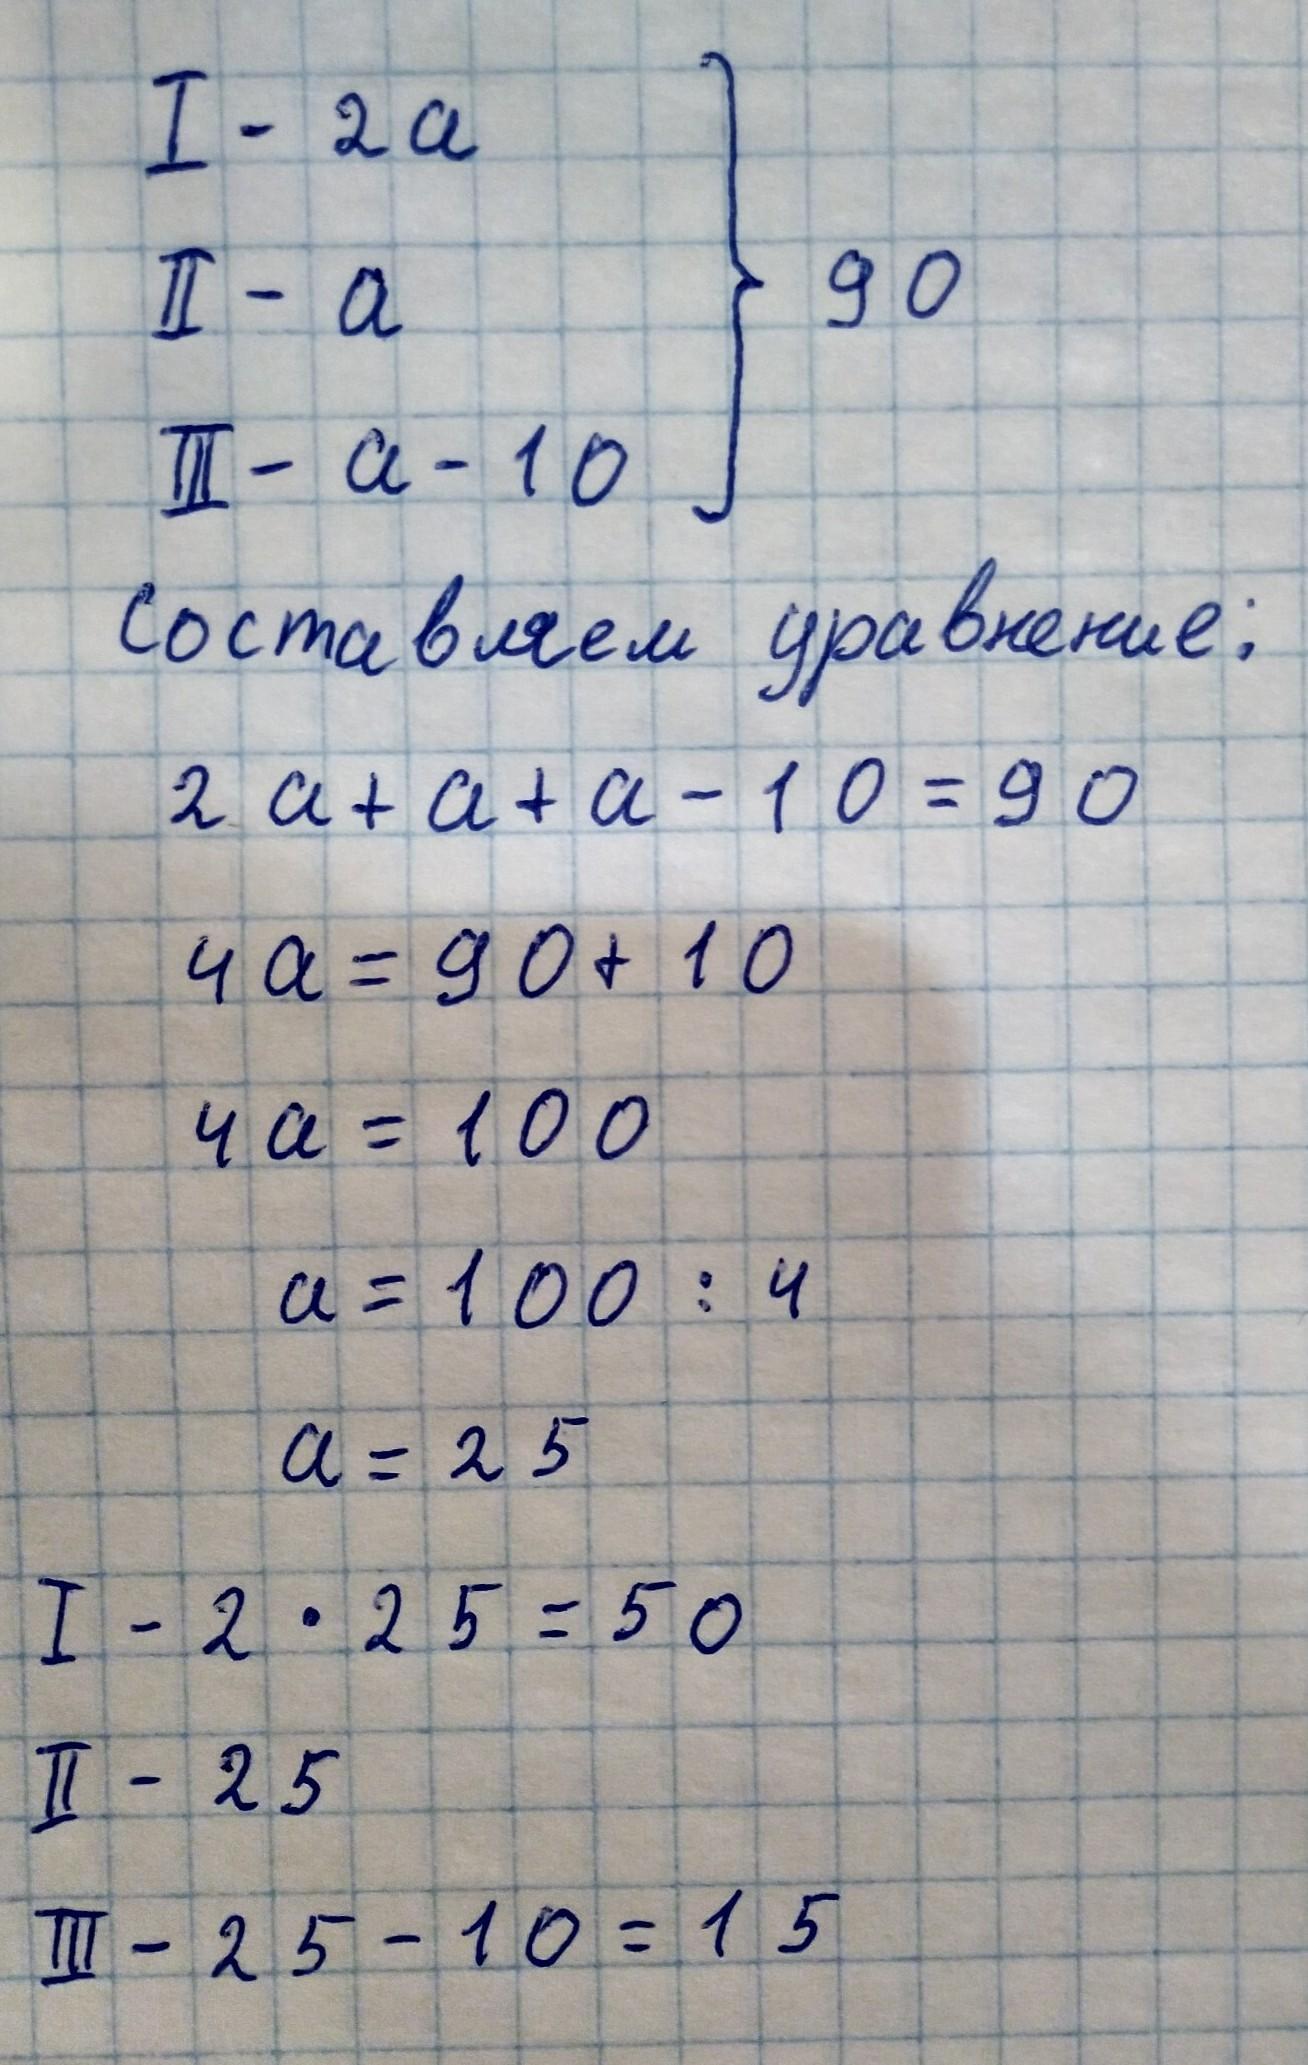 I - 2a
II - a
III - a - 10
} 90
Составляем уравнение:
2a + a + a - 10 = 90
4a = 90 + 10
4a = 100
a = 100 : 4
a = 25
I - 2 · 25 = 50
II - 25
III - 25 - 10 = 15